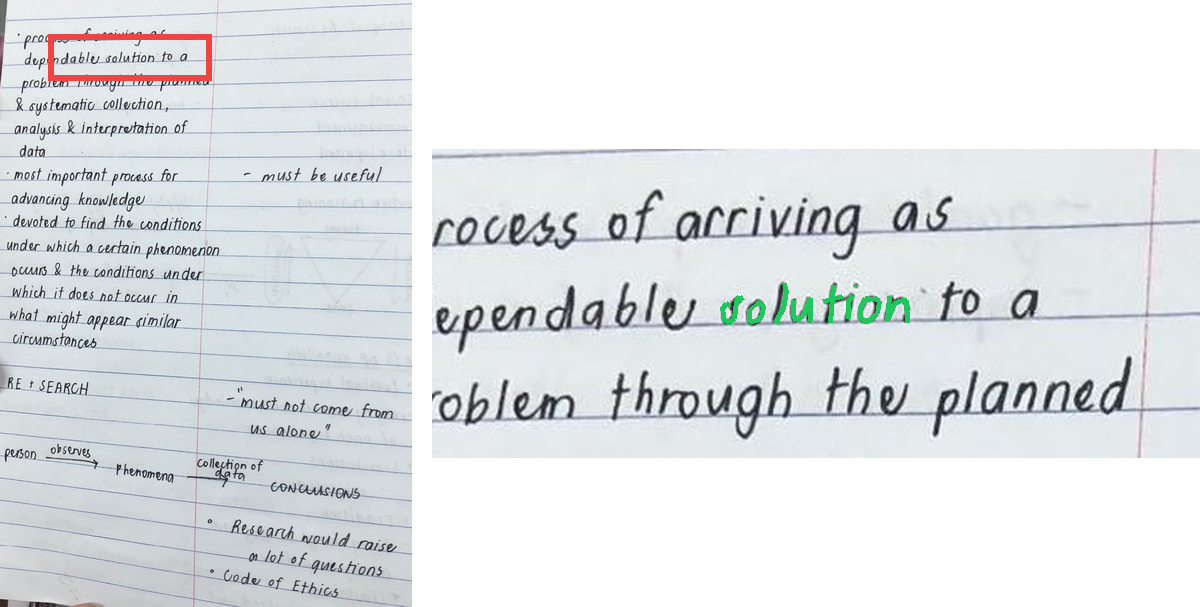 · process of arriving as
dependable solution to a
problem through the planned
& systematic collection,
analysis & interpretation of
data
· most important process for
advancing knowledge
· devoted to find the conditions
under which a certain phenomenon
occurs & the conditions under
which it does not occur in
what might appear similar
circumstances
- must be useful
RE + SEARCH
- "must not come from
us alone"
person observes Phenomena collection of
data CONCLUSIONS
° Research would raise
a lot of questions
° Code of Ethics
rocess of arriving as
ependable solution to a
oblem through the planned